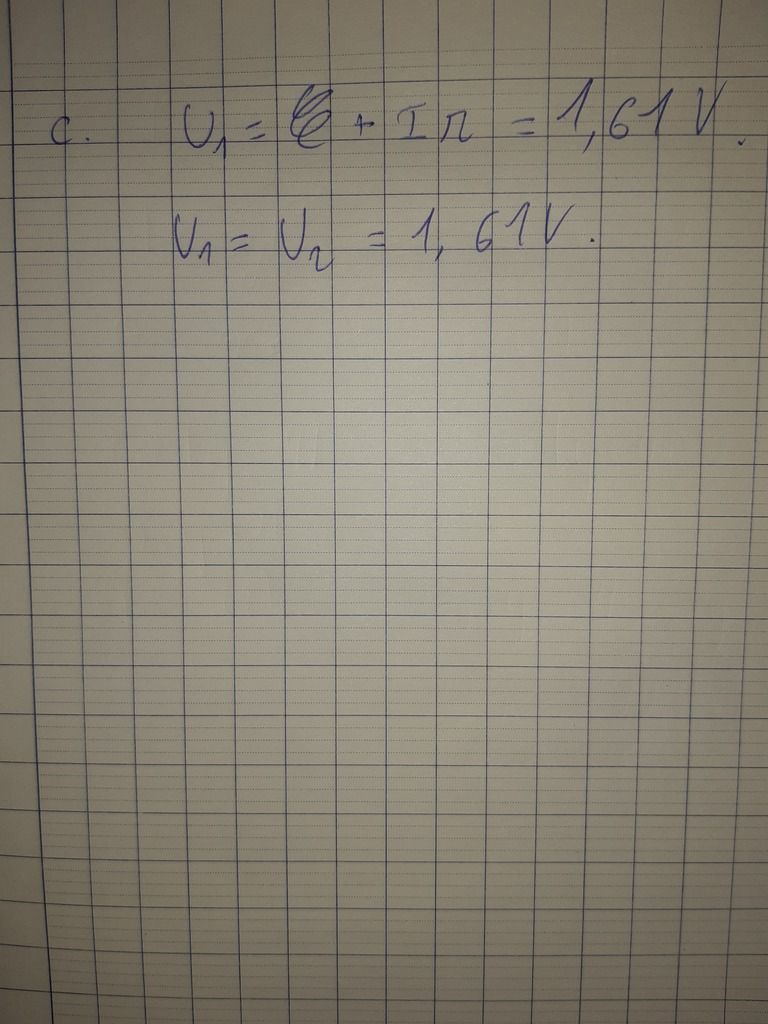 c. U₁ = E + Ir = 1,61 V.
U₁ = U₂ = 1,61 V.